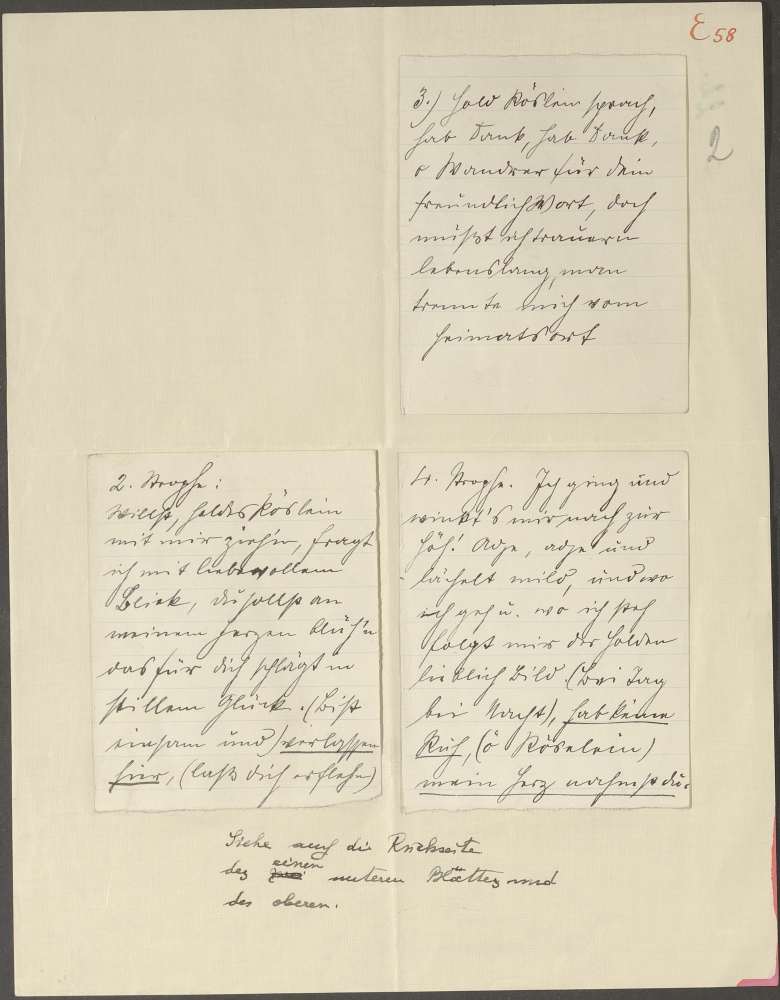 E 58
2
3.) Hold Röslein sprach,
hab Dank, hab Dank,
o Wandrer für dein
freundlich Wort, doch
müßt ich trauern
lebenslang, man
trennte mich vom
Heimatsort
2. Strophe:
Willst, holdes Röslein
mit mir zieh'n, fragt
ich mit liebevollem
Blick, du sollst an
meinem Herzen blüh'n
das für dich schlägt in
stillem Glück. (Bist
einsam und) verlassen
hier, (laß dich erfleh'n)
4. Strophe. Ich ging und
winkt's mir nach zur
Höh! Adje, adje und
lächelt mild, und wo
ich geh u. wo ich steh
folgt mir der Holden
lieblich Bild (Bei Tag
bei Nacht), hab keine
Ruh, (o Röselein)
mein Herz nahmst du.
Siehe auch die Rückseite
des einen unteren Blattes und
des oberen.